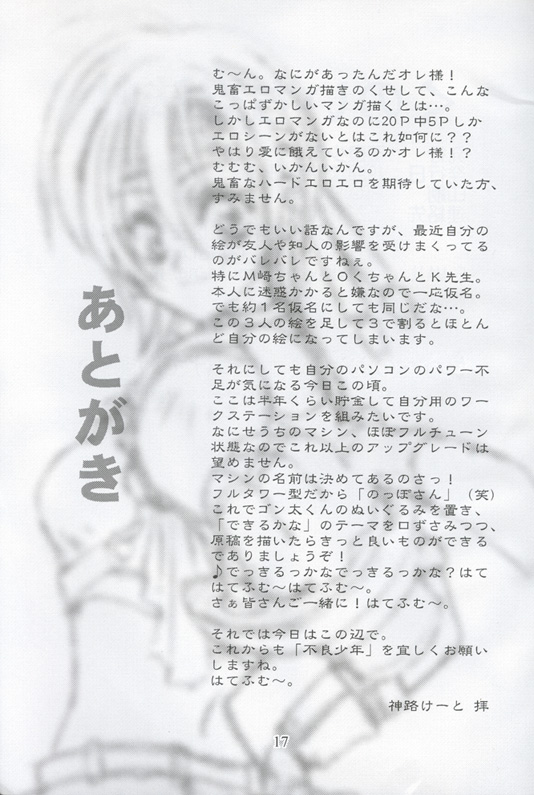 あとがき
む〜ん。なにがあったんだオレ様！
鬼畜エロマンガ描きのくせして、こんな
こっぱずかしいマンガ描くとは…。
しかしエロマンガなのに20P中5Pしか
エロシーンがないとはこれ如何に？？
やはり愛に餓えているのかオレ様！？
むむむ、いかんいかん。
鬼畜なハードエロエロを期待していた方、
すみません。
どうでもいい話なんですが、最近自分の
絵が友人や知人の影響を受けまくってる
のがバレバレですねぇ。
特にM崎ちゃんとOくちゃんとK先生。
本人に迷惑かかると嫌なので一応仮名。
でも約1名仮名にしても同じだな…。
この3人の絵を足して3で割るとほとん
ど自分の絵になってしまいます。
それにしても自分のパソコンのパワー不
足が気になる今日この頃。
ここは半年くらい貯金して自分用のワー
クステーションを組みたいです。
なにせうちのマシン、ほぼフルチューン
状態なのでこれ以上のアップグレードは
望めません。
マシンの名前は決めてあるのさっ！
フルタワー型だから「のっぽさん」（笑）
これでゴン太くんのぬいぐるみを置き、
「できるかな」のテーマを口ずさみつつ、
原稿を描いたらきっと良いものができる
でありましょうぞ！
♪でっきるっかなでっきるっかな？はて
はてふむ〜はてはてふむ〜。
さぁ皆さんご一緒に！はてふむ〜。
それでは今日はこの辺で。
これからも「不良少年」を宜しくお願い
しますね。
はてふむ〜。
神路けーと 拝
17